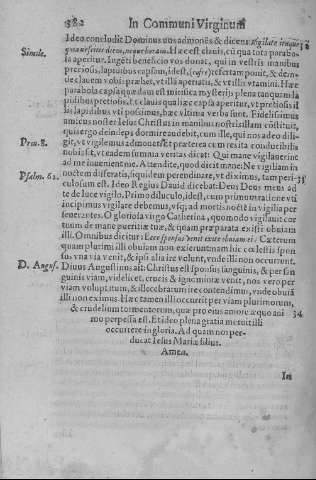 382 In Communi Virginum
Ideo concludit Dominus nos admonēs & dicens: Vigilate itaque,
quia nescitis diem, neque horam. Hæc est clauis, cū qua tota parabo-
Simile.
la aperitur. Ingēti beneficio vos donat, qui in vestris manibus
preciosis, lapidibus capsam, idest, refertam ponit, & dein-
de clauem vobis præbet, vt illā aperiatis, & vt illis vtamini. Hæc
parabola capsa quædam est mistica mysterijs plena tanquam la
pidibus pretiosis, et clauis qua hæc capsa aperitur, vt pretiosis il-
lis lapidibus vti possimus, hæc vltima verba sunt. Fidelissimus
amicus noster Iesus Christus in manibus nostris illam cōstituit,
qui ergo deindeps dormire audebit, cum ille, qui nos adeo dili-
Prou. 8.
git, vt vigilemus admonest et præterea cum resita conducibilis
nobis sit, vt eadem summa veritas dicat: Qui mane vigilauerint
ad me inuenient me. Attendite, quod dicit mane: Ne vigiliam in
noctem differatis, siquidem perendinare, vt diximus, tam peri-
Psalm. 62.
culosum est. Ideo Regius Dauid dicebat: Deus Deus meus ad
te de luce vigilo. Primo diluculo, idest, cum primum ratione vti
incipimus vigilare debemus, vsq; ad mortis nocte in vigilia per
seuerantes. O gloriosa virgo Catherina, quomodo vigilauit cor
tuum de mane pueritiæ tuæ, & quam præparata exiuisti obuiam
illi. Omnibus dicitur: Ecce sponsus venit exite obuiam ei. Cæterum
quam plurimi illi obuiam non exierunt nam hic cœlestis spon
sus vna via venit, & ipsi alia ire volunt, vnde illi non occurrunt.
D. Augus.
Diuus Augustinus ait: Christus est sponsus sanguinis, & per san
guinis viam, videlicet, crucis & ignominiæ venit, nos vero per
viam voluptatum, & illecebrarum ire contendimus, vnde obuiā
illi non eximus. Hæc tamen illi occurrit per viam plurimorum,
& crudelium tormentorum, quæ pro eius amore æquo ani
34
mo perpessa est. Et ideo plena gratia meruit illi
occurrere in gloria. Ad quam nos per-
ducat Iesus Mariæ filius.
Amen.
In